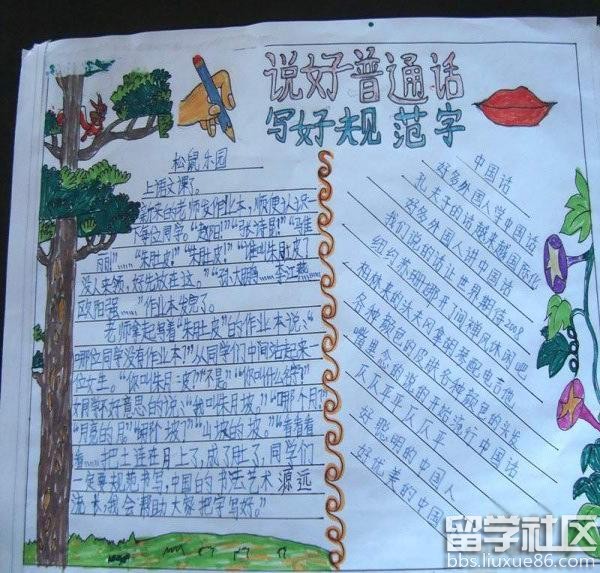 说好普通话
写好规范字
松鼠乐园
上语文课了。
新来的老师发作业本，顺便认识一
下每位同学。“赵阳！”“张诗昆！”“马佳
丽！……“朱肚皮！”“朱肚皮！”“谁叫朱肚皮？
没人来领，好先放在这。”“孙大鹏……李江燕……
欧阳强……”作业本发完了。
老师拿起写着“朱肚皮”的作业本说：“
哪位同学没有作业本？”从同学们中间站起来一
位女生。“你叫朱月坡？”“不是”“你叫什么名字？”
女同学不好意思的说：“我叫朱月坡。”“哪个月？”
“月亮的月”“哪个坡？”“山坡的坡。”“看看看
看……把土连在月上了，成了肚了，同学们
一定要规范书写，中国的书法艺术源远
流长，我会帮助大家把字写好。”
中国话
好多外国人学中国话
孔夫子的话越来越国际化
好多外国人讲中国话
我们说的话让世界期待2008
纽约苏珊娜开了间禅风休闲吧
柏林来的沃夫冈拿胡琴配电吉他
各种颜色的皮肤各种颜色的头发
嘴里念的说的开始流行中国话
仄仄平平仄仄平
好聪明的中国人
好优美的中国
留学社区
bbs.liuxue86.com